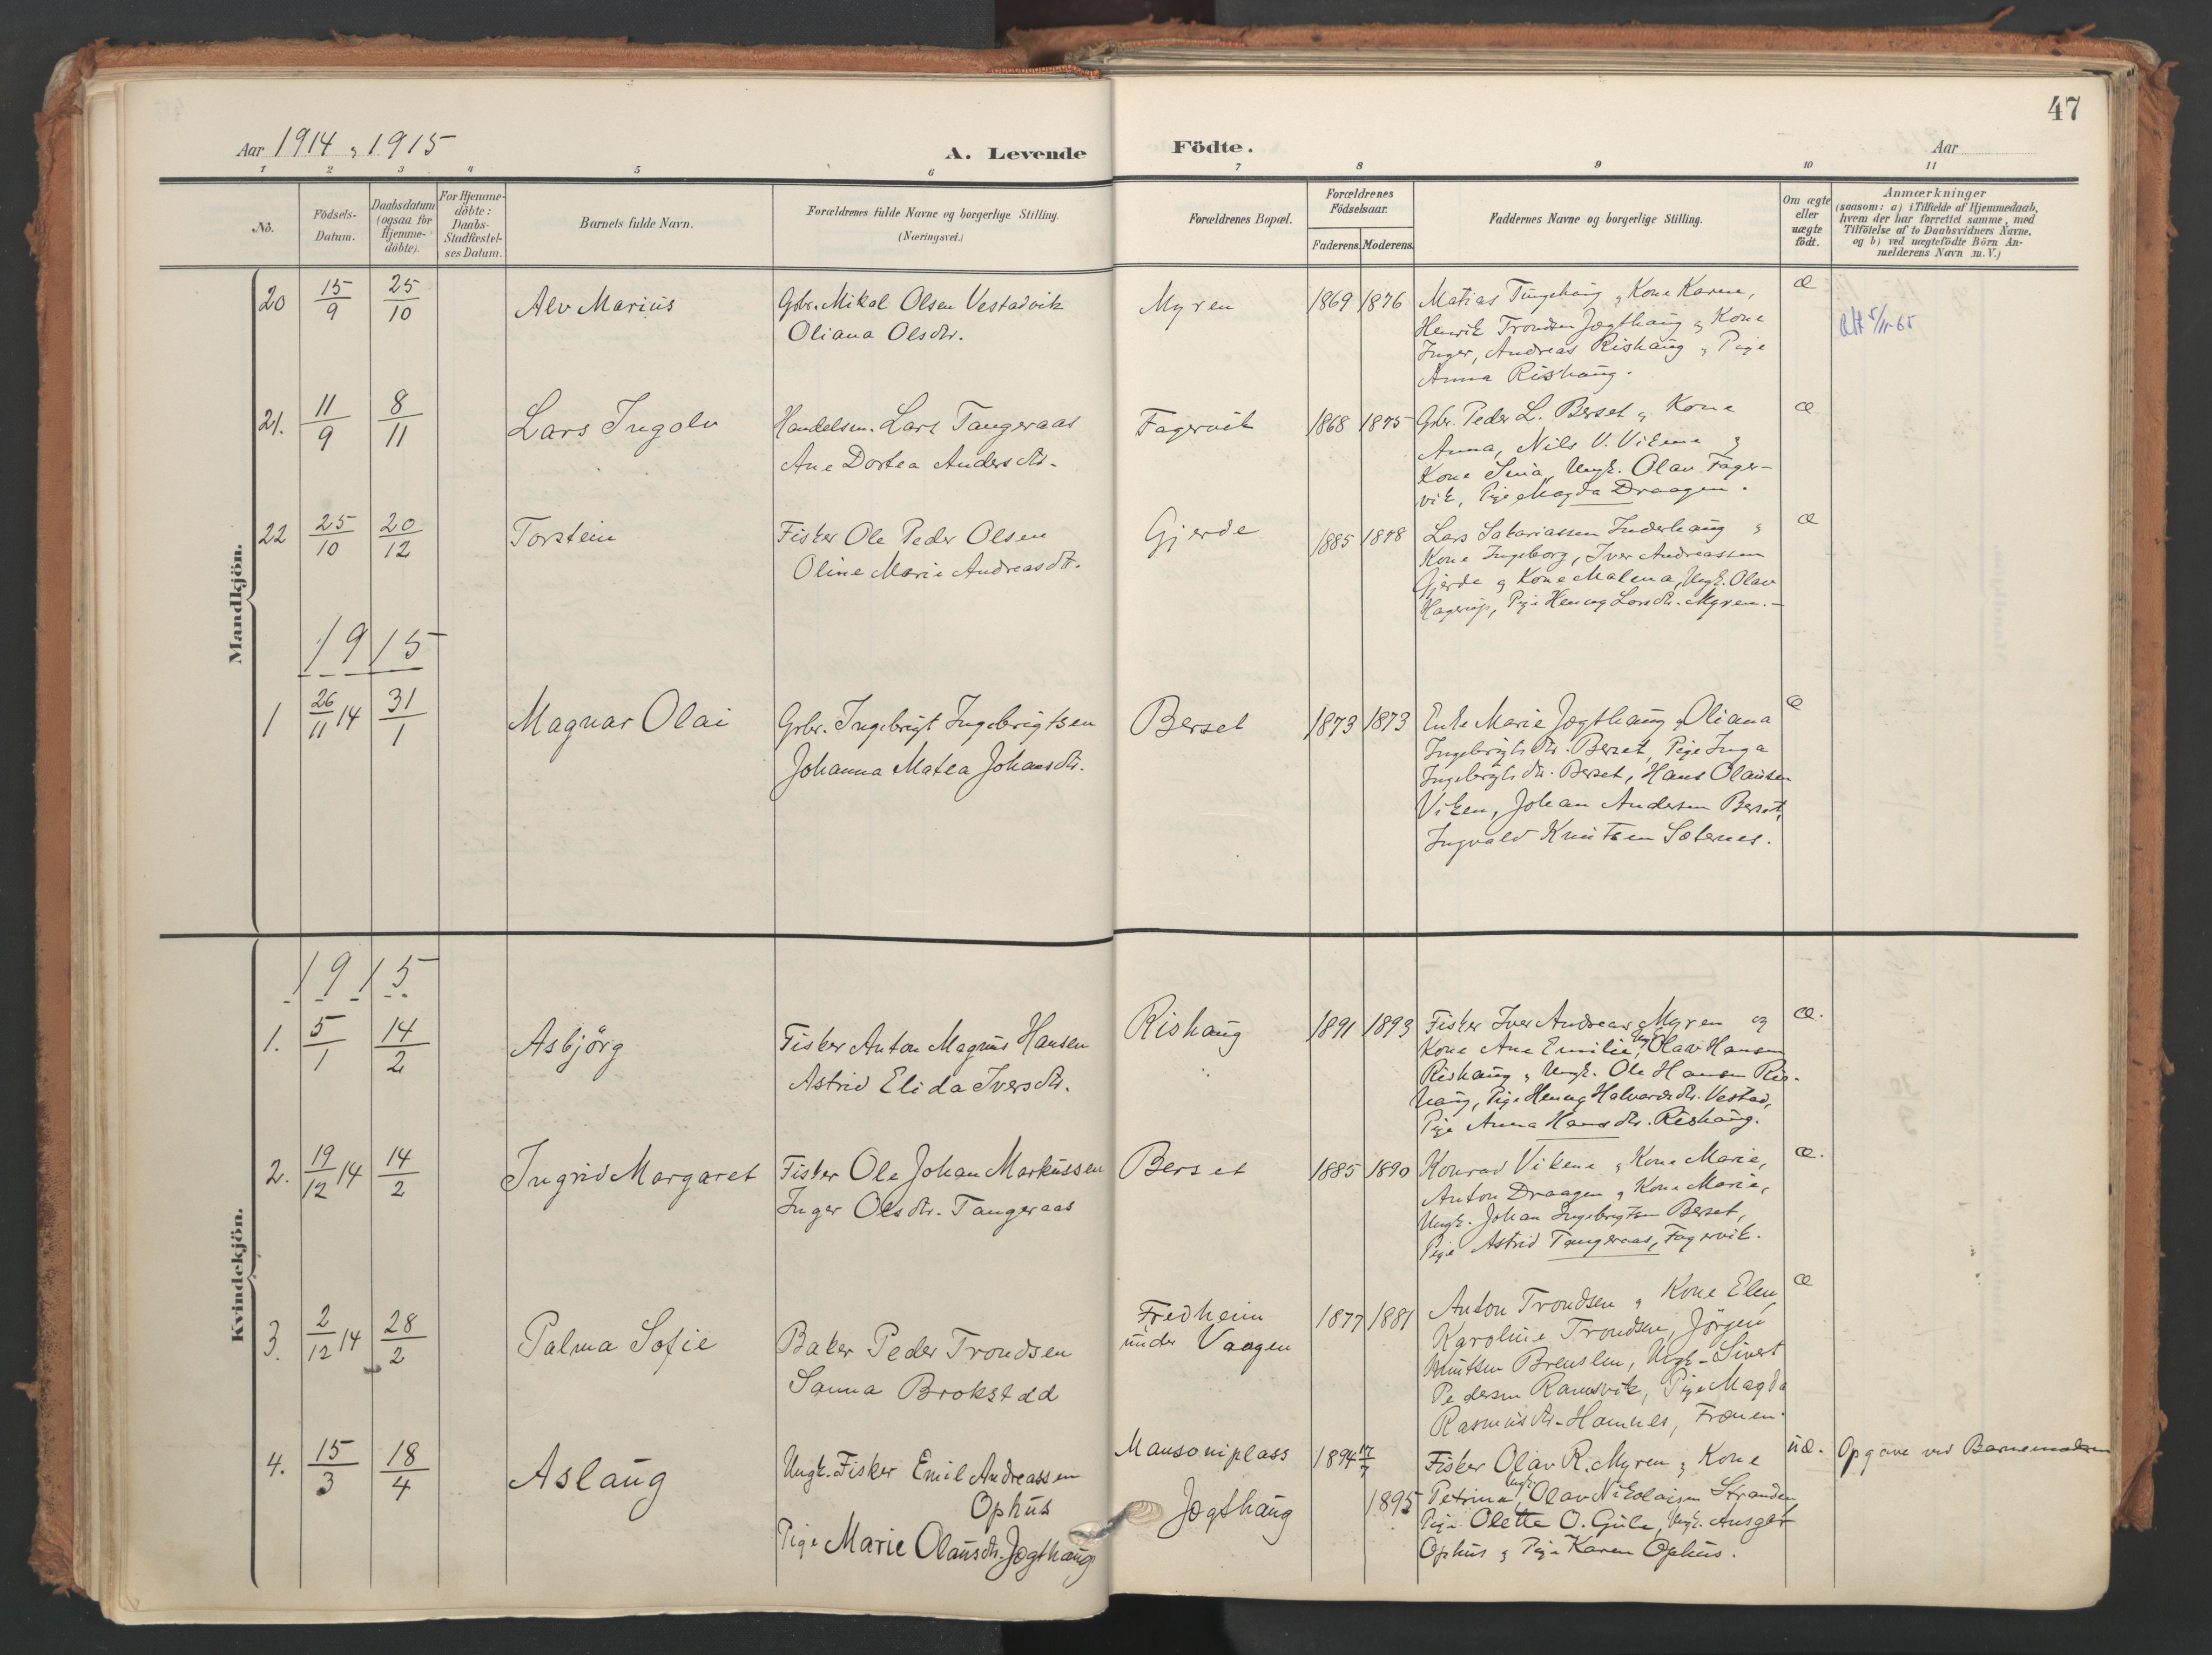 47
Aar 1914 & 1915
A. Levende
Födte.
Aar
1 2 3 4 5 6 7 8 9 10 11
No.
Födsels-Datum.
Daabsdatum (ogsaa for Hjemme-döbte).
For Hjemme-döbte: Daabs-Stadfæstel-ses Datum.
Barnets fulde Navn.
Forældrenes fulde Navne og borgerlige Stilling.
(Næringsvei.)
Forældrenes Bopæl.
Forældrenes Födselsaar.
Faderens. Moderens.
Faddernes Navne og borgerlige Stilling.
Om ægte eller uægte født.
Anmærkninger
(saasom: a) i Tilfælde af Hjemmedaab,
hvem der har forrettet samme, med
Tilföielse af to Daabsvidners Navne,
og b) ved uægtefödte Börn An-
melderens Navn m. V.)
Mandkjön.
20 15/9 25/10 Alv Marius
Gbr. Mikal Olsen Vestadvik
Oliana Olsdtr.
Myren 1869 1876
Matias Tungehaug & Kone Karen,
Henrik Trondsen Jøgthaug & Kone
Inger, Andreas Rishaug & Pige
Anna Rishaug.
æ
5/11-65
21. 11/9 8/11 Lars Ingolv
Handelsm. Lars Tangeraas
Ane Dortea Andersdtr.
Fagervik 1868 1875
Gbr. Peder L. Berset & Kone
Anna, Nils V. Vikene &
Kone Sina, Ungk. Olav Fager-
vik, Pige Magda Draagen.
æ
22 25/10 20/12 Torstein
Fisker Ole Peder Olsen
Oline Marie Andreasdtr.
Gjerde 1885 1878
Lars Sakariassen Inderhaug &
Kone Ingeborg, Iver Andreassen
Gjerde & Kone Malena, Ungk. Olav
Hagerup, Pige Henny Larsdtr. Myren.
æ
1915
1 26/11 14 31/1 Magnar Olai
Gbr. Ingebrigt Ingebrigtsen
Johanna Matea Johansdtr.
Berset 1873 1873
Enke Marie Jøgthaug, Oliana
Ingebrigtsdtr. Berset, Pige Inga
Ingebrigtsdtr. Berset, Hans Olausen
Viken, Johan Andersen Berset,
Ingvald Knutsen Sæternes.
æ
Kvindekjön.
1915
1. 5/1 14/2 Asbjörg
Fisker Anton Magnus Hansen
Astrid Elida Iversdtr.
Rishaug 1891 1893
Fisker Iver Andreas Myren og
Kone Ane Emilie, Ungk. Olav Hansen
Rishaug & Ungk. Ole Hansen Ris-
haug, Pige Henny Halvardsdtr. Vestad,
Pige Anna Hansdtr. Rishaug.
æ.
2. 19/12 14 14/2 Ingrid Margaret
Fisker Ole Johan Markussen
Inger Olsdtr. Tangeraas
Berset 1885 1890
Konrad Vikene & Kone Marie,
Anton Draagen & Kone Marie,
Ungk. Johan Ingebrigtsen Berset,
Pige Astrid Tangeraas, Fagervik.
æ.
3. 2/12 14 28/2 Palma Sofie
Baker Peder Trondsen
Sanna Brokstad
Fredheim
under Vaagen 1877 1881
Anton Trondsen & Kone Elen,
Karoline Trondsen, Jörgen
Knutsen Breuslen, Ungk. Sivert
Pedersen Ramsvik, Pige Magda
Rasmusdtr. Hamnes, Frænen.
æ
4. 15/3 18/4 Aslaug
Ungk. Fisker Emil Andreassen
Ophus
Pige Marie Olausdtr. Jøgthaug
Mausoniplass
Jøgthaug
1894 17/7
1895
Fisker Olav R. Myren & Kone
Petrina, Ungk. Olav Nikolaisen Stranden
Pige Olette O. Gule, Ungk. Ansgar
Ophus & Pige Karen Ophus.
uæ.
Opgave ved Barnemoderen